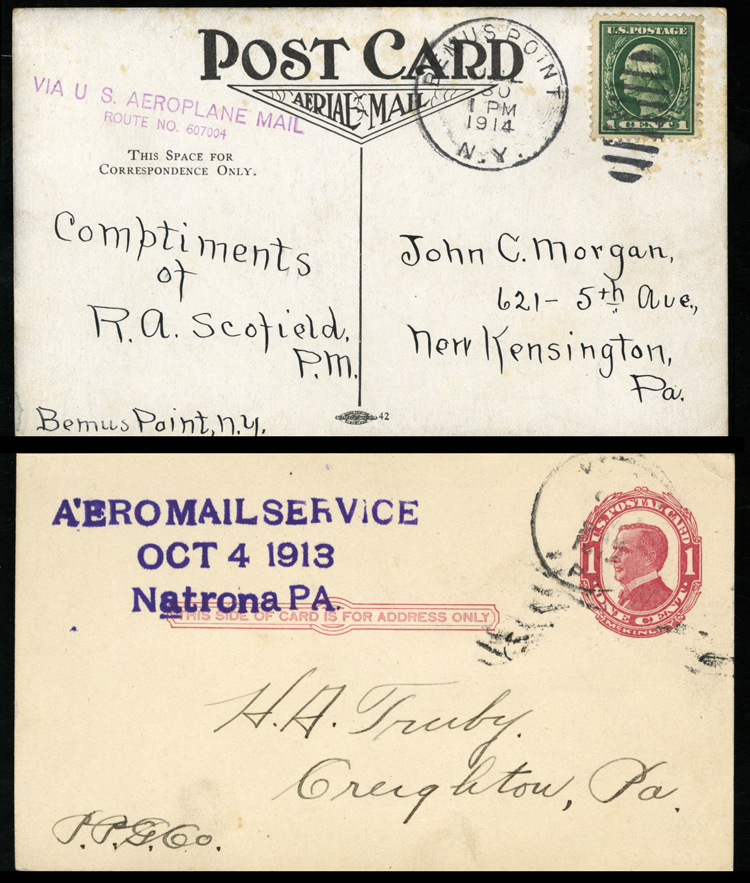 POST CARD
AERIAL MAIL
VIA U S. AEROPLANE MAIL
ROUTE NO. 607004
BEMUS POINT
30
1 PM
1914
N.Y.
U.S. POSTAGE
1 CENT 1
THIS SPACE FOR
CORRESPONDENCE ONLY.
Compliments
of
R.A. Scofield,
P.M.
Bemus Point, N.Y.
John C. Morgan,
621- 5th Ave.,
New Kensington,
Pa.
42
AERO MAIL SERVICE
OCT 4 1913
Natrona PA.
THIS SIDE OF CARD IS FOR ADDRESS ONLY
U.S. POSTAL CARD
1 1
ONE CENT.
McKINLEY
H.A. Truby.
Creighton, Pa.
P.P.G. Co.